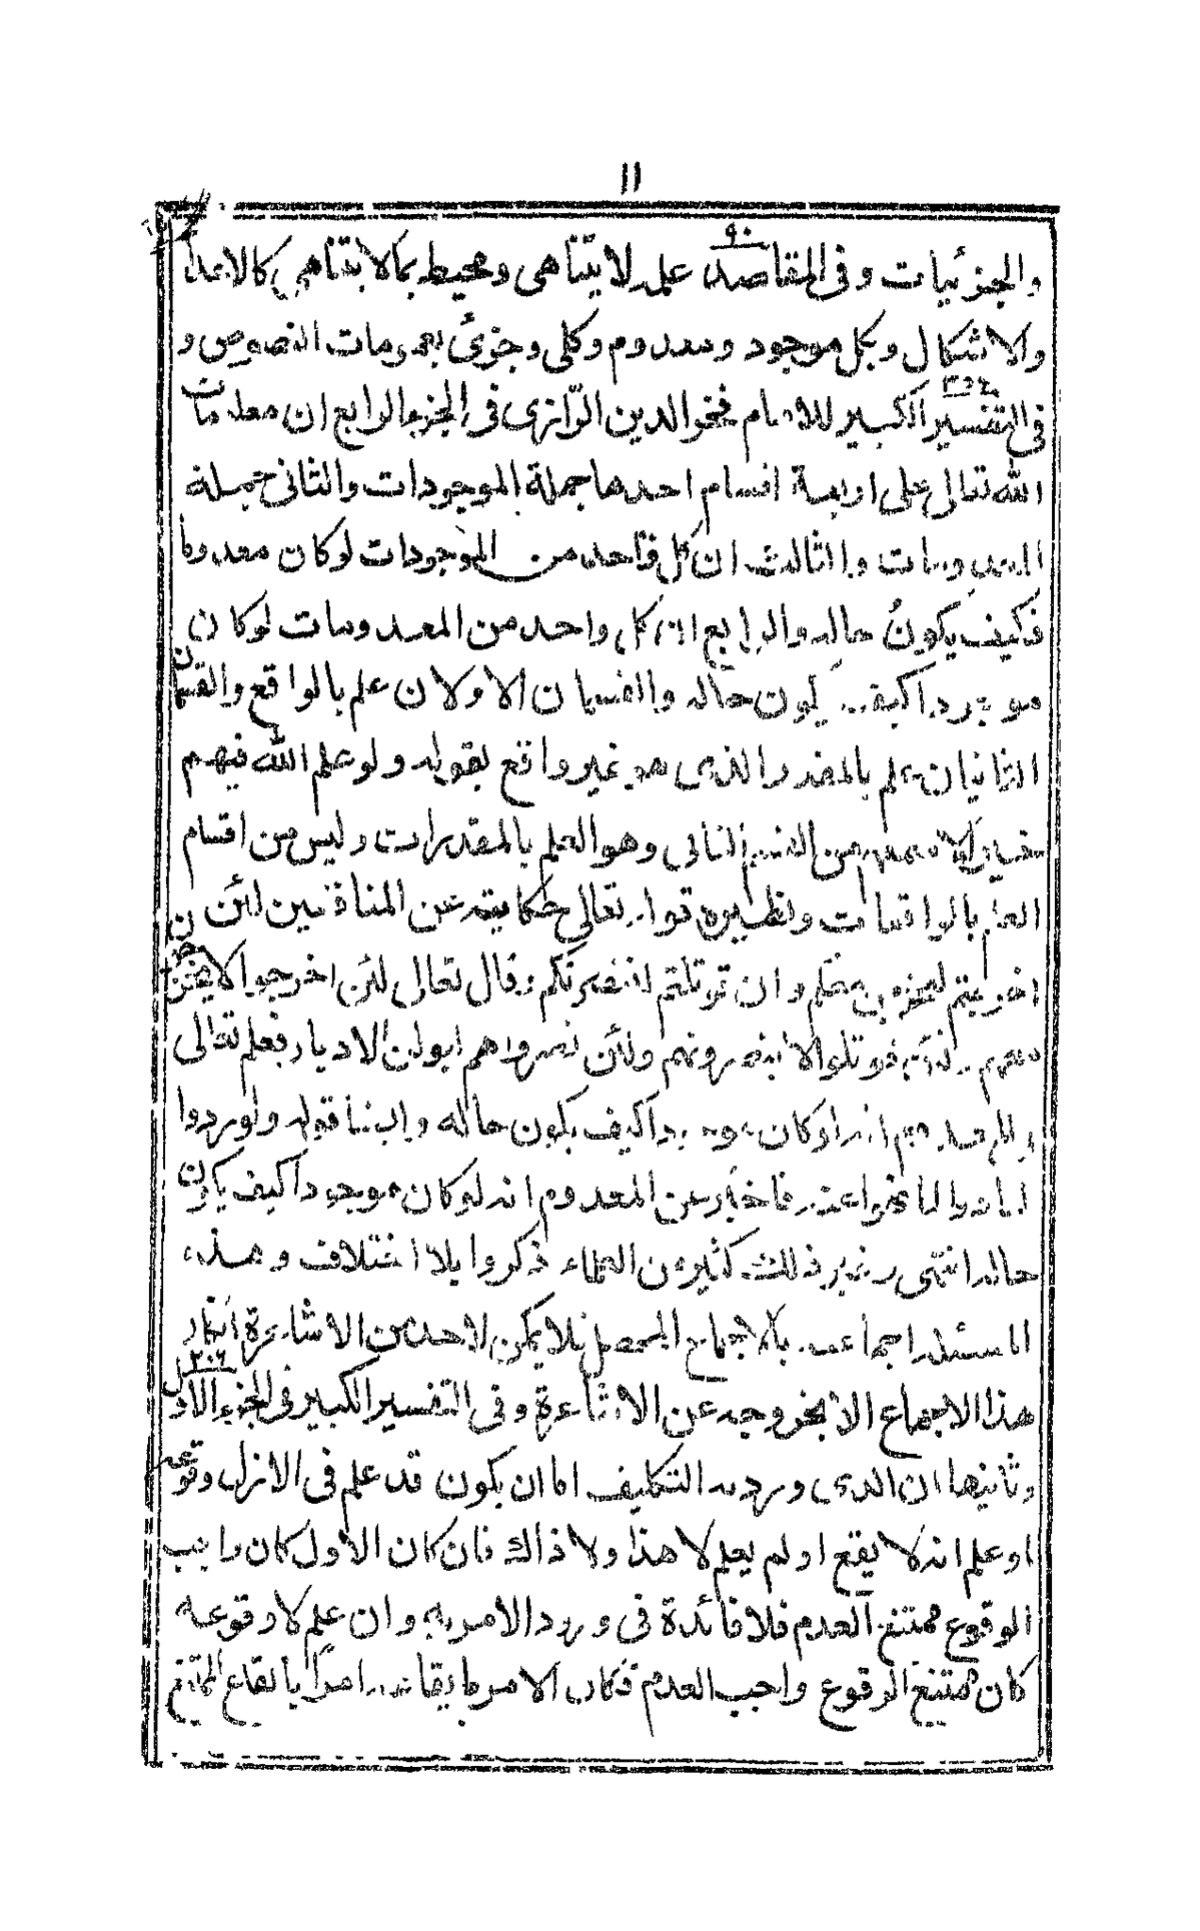 ١١
٩٠
والجزئيات وفى المقاصد علمه لا يتناهى ومحيط بما لا يتناهى كالاعداد
والاشكال وبكل موجود ومعدوم وكلى وجزئ بعمومات النصوص و
فى التفسير الكبير للامام فخر الدين الرّازى فى الجزء الرابع ان معلومات
الله تعالى على اربعة اقسام احدها جملة الموجودات والثانى جملة
المعدومات والثالث ان كل واحد من الموجودات لو كان معدوما
فكيف يكونُ حاله والرابع ان كل واحد من المعدومات لو كان
موجودا كيف يكون حاله والقسمان الاولان علم بالواقع والقسمان
الثانيان علم بالمقدر الذى هو غير واقع بقوله ولو علم الله فيهم
خيرا لاسمعهم من القسم الثانى وهو العلم بالمقدرات وليس من اقسام
العلم بالواقعات ونظيره قوله تعالى حكاية عن المنافقين لئن
اخرجتم لنخرجن معكم وان قوتلتم لننصرنكم وقال تعالى لئن اخرجوا لا يخرجون
معهم ولئن قوتلوا لا ينصرونهم ولئن نصروهم ليولن الادبار فعلم تعالى
بالمعدوم انه لو كان موجودا كيف يكون حاله وايضا قوله ولو ردوا
لعادوا لما نهوا عنه فاخبر عن المعدوم انه لو كان موجودا كيف يكون
حاله انتهى وغير ذلك كثير من العلماء ذكروا بلا اختلاف وهذه
المسئلة اجماعية بالاجماع المحصل فلا يمكن لاحد من الاشاعرة انكار
هذا الاجماع الا بخروجه عن الاشاعرة وفى التفسير الكبير فى الجزء الاول
٢٠٦
وثانيها ان الذى ورد به التكليف اما ان يكون قد علم فى الازل وقوعه
او علم انه لا يقع او لم يعلم لا هذا ولا ذاك فان كان الاول كان واجب
الوقوع ممتنع العدم فلا فائدة فى ورود الامر به وان علم لا وقوعه
كان ممتنع الوقوع واجب العدم فكان الامر بايقاعه امرًا بايقاع الممتنع